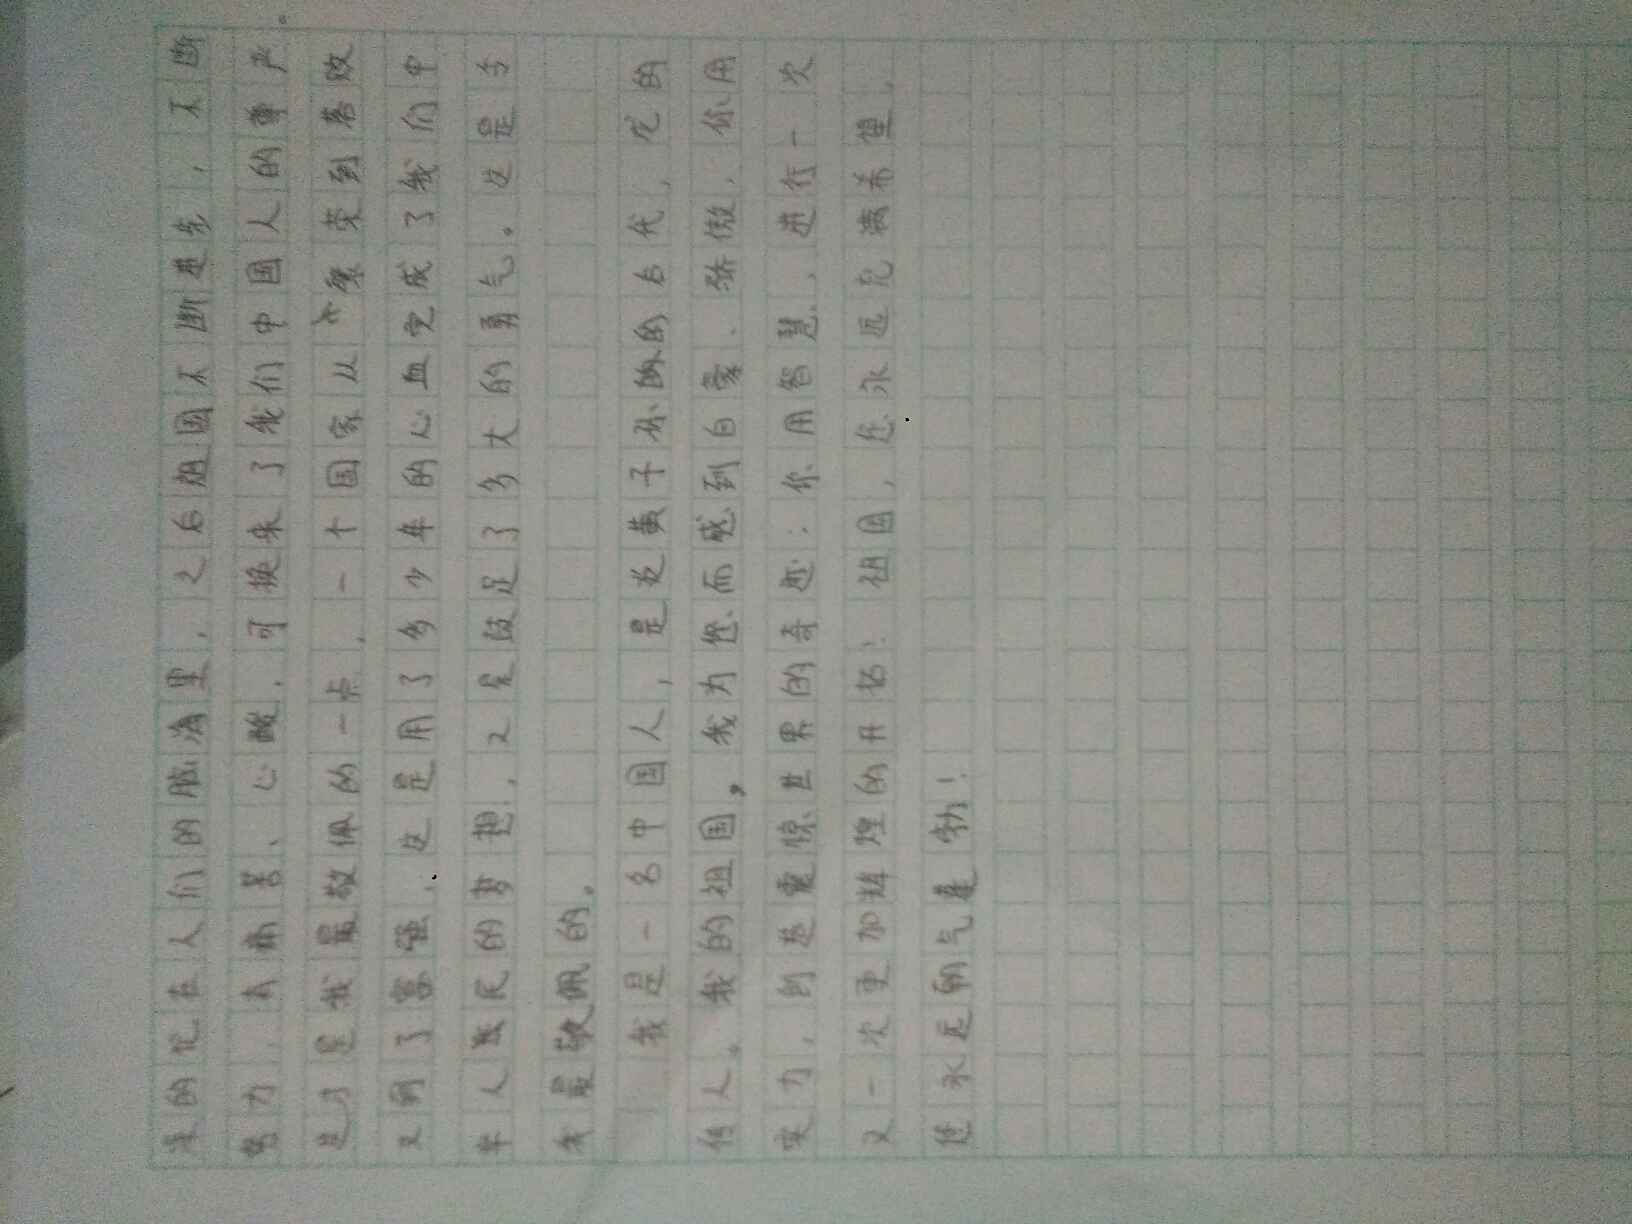 深的记在人们的脑海里，之后祖国不断进步，不断
努力，有辛苦、心酸，可换来了我们中国人的尊严
是我最敬佩的一点，一个国家从繁荣到落败
又到了富强，这是用了多少年的心血完成了我们中
华人民的梦想，又是做足了多大的勇气。这是令
我最敬佩的。
我是一名中国人，是炎黄子孙的后代，龙的
传人。我的祖国，我为您而感到自豪、骄傲，你用
实力，创造震惊世界的奇迹：你用智慧，进行一次
又一次更加辉煌的开拓！祖国，您永远充满希望，
您永远朝气蓬勃！